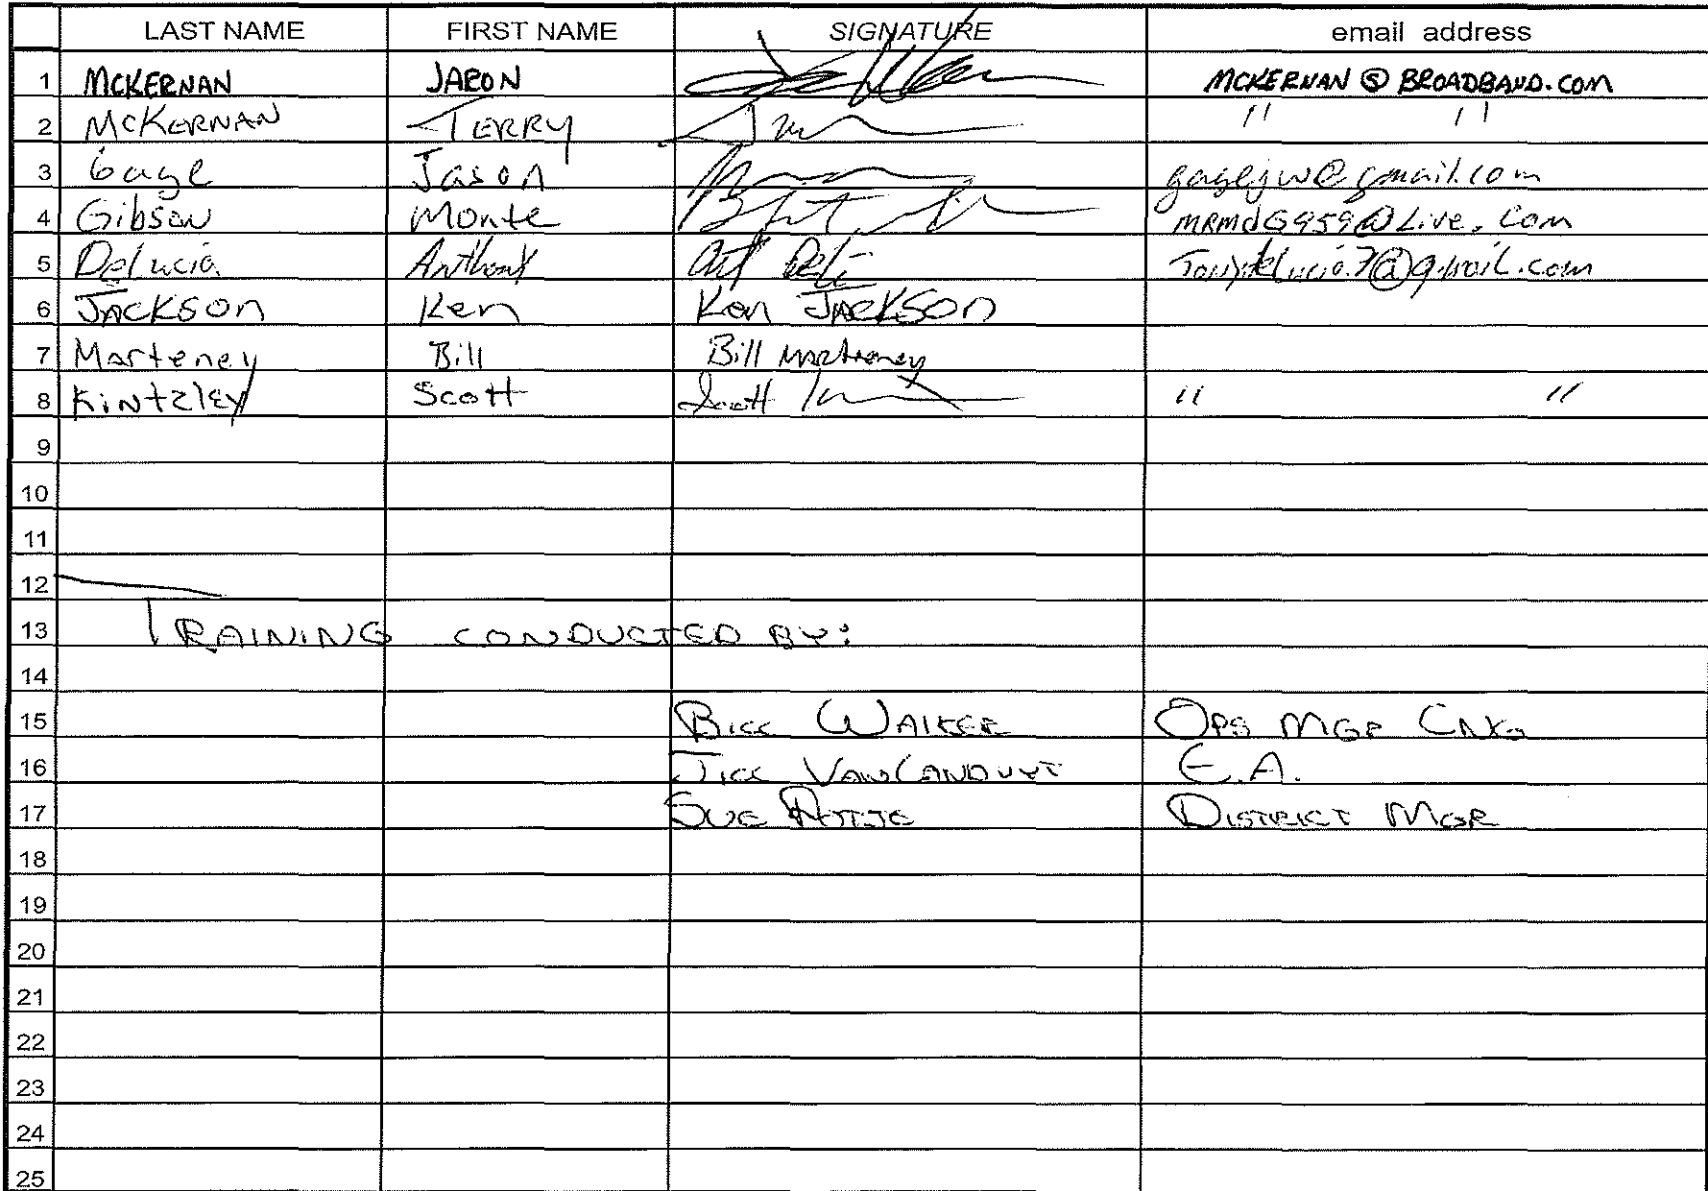 LAST NAME FIRST NAME SIGNATURE email address
1 MCKERNAN JARON MCKERNAN @ BROADBAND.COM
2 MCKERNAN TERRY " "
3 Gage Jason gagejw@gmail.com
4 Gibson Monte MRMDG959@Live.Com
5 DeLucia Anthony Tonydelucia.7@gmail.com
6 JACKSON Ken Ken JACKSON
7 Marteney Bill Bill Marteney
8 Kintzley Scott Scott " "
9
10
11
12
13 TRAINING CONDUCTED BY:
14
15 BILL WALKER OPS MGR CNG
16 E.A.
17 SUE DISTRICT MGR
18
19
20
21
22
23
24
25